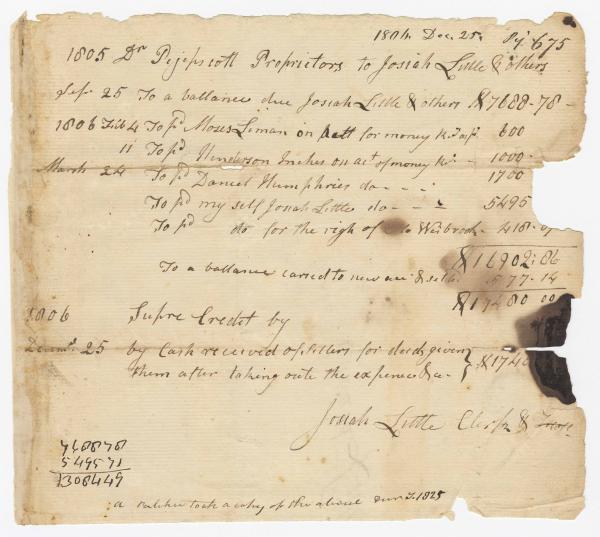 1804 Dec. 25. Pg 675
1805 Dr Pejepscott Proprietors to Josiah Little & others
Sep. 25 To a ballance due Josiah Little & others $7688-78-
1806 Feb 4 To pd Moses Liman on for money 600
11 To pd Henderson Inches on act of money 1000-
March 24 To pd Daniel Humphries do - - - 1700
To pd my self Josiah Little do - - - 5495
To pd do for the righ of Waibrook - 418-
$16902:86
To a ballance caried to new acc 577-14
$17480 00
1806 Supre Credet by
25 by Cash received of settlers for deeds given } $1748
them after taking oute the expences &c - }
Josiah Little Clerk &
768878
549571
1308449
a took a copy of the above 1825